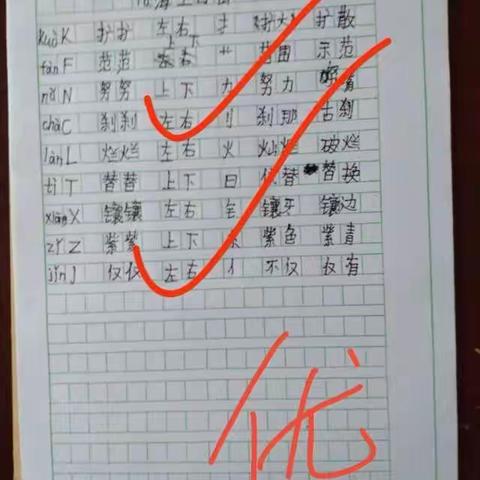 kuòK 扩扩 左右 扌 扩大 扩散
fànF 范范 上下 艹 范围 示范
nǔN 努努 上下 力 努力
chàC 刹刹 左右 刂 刹那 古刹
lànL 烂烂 左右 火 灿烂 破烂
tìT 替替 上下 日 代替 替换
xiāngX 镶镶 左右 钅 镶牙 镶边
zǐZ 紫紫 上下 紫色 紫青
jǐnJ 仅仅 左右 亻 不仅 仅有
优